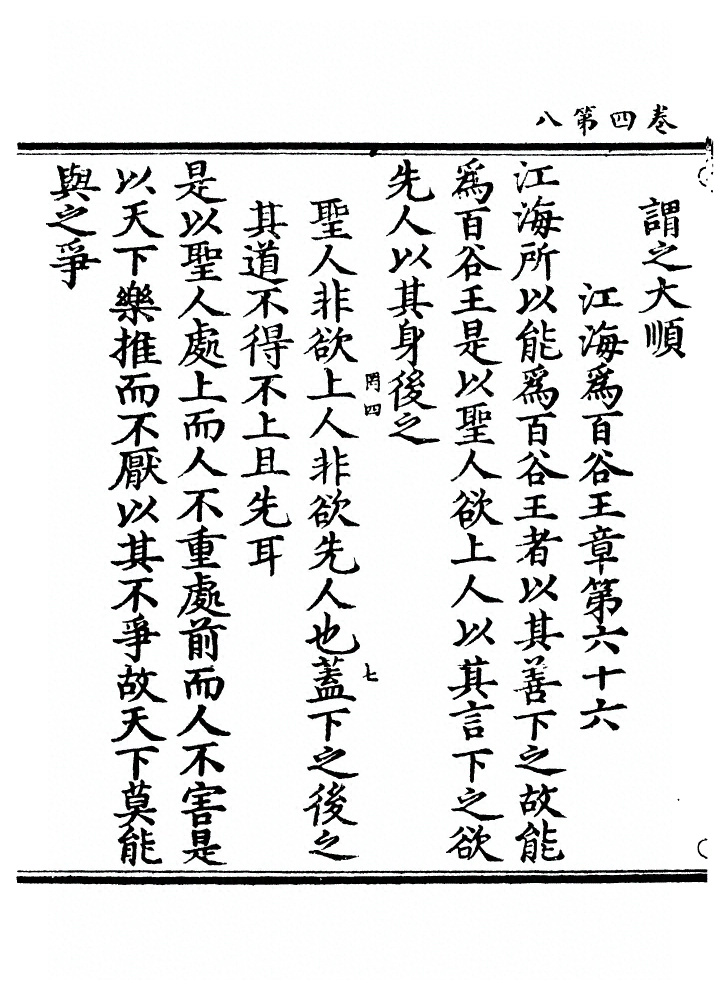 卷四第八
謂之大順
江海爲百谷王章第六十六
江海所以能爲百谷王者以其善下之故能
爲百谷王是以聖人欲上人以其言下之欲
先人以其身後之
罔四
七
聖人非欲上人非欲先人也蓋下之後之
其道不得不上且先耳
是以聖人處上而人不重處前而人不害是
以天下樂推而不厭以其不爭故天下莫能
與之爭